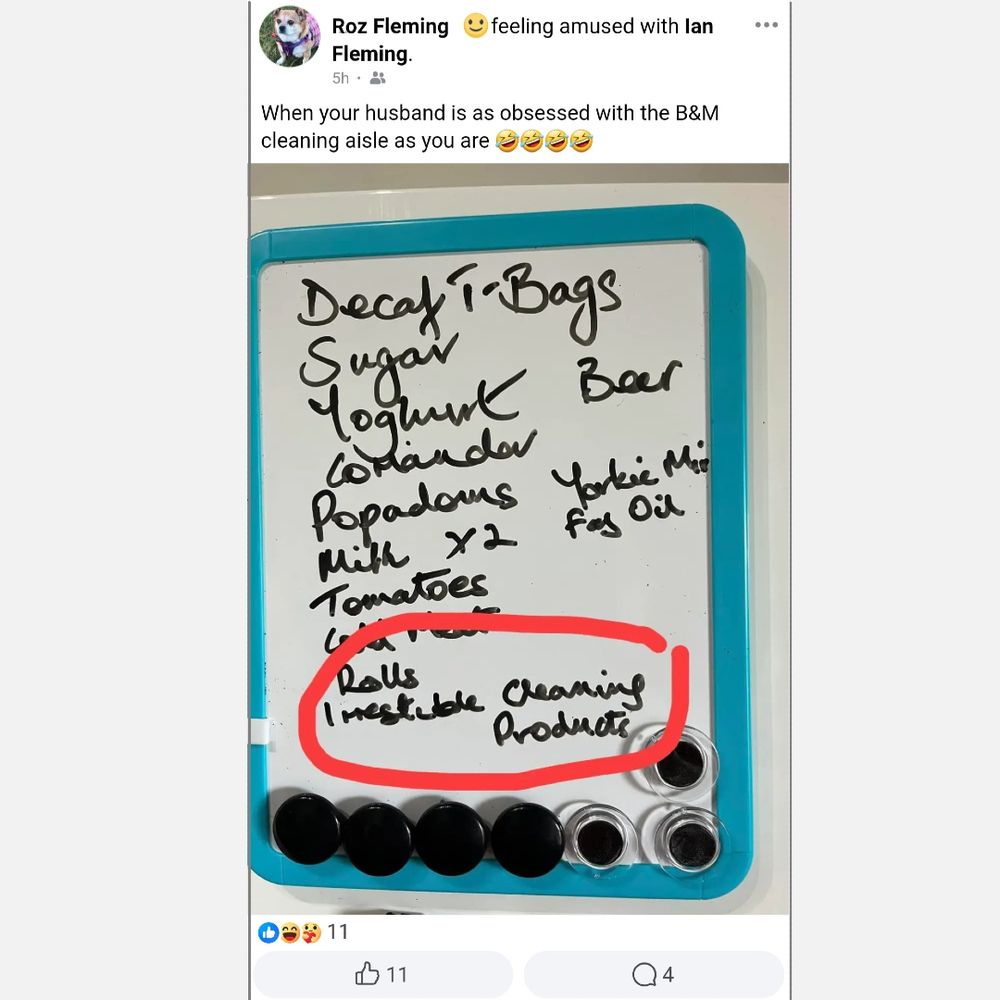 Roz Fleming 🙂 feeling amused with Ian
Fleming.
5h
When your husband is as obsessed with the B&M
cleaning aisle as you are 🤣🤣🤣🤣
Decaf T-Bags
Sugar
Beer
Yoghurt
Coriander
Popadoms
Yorkie
Milk x2
Oil
Tomatoes
Cold Meat
Rolls
Cleaning
Products
11
11
4